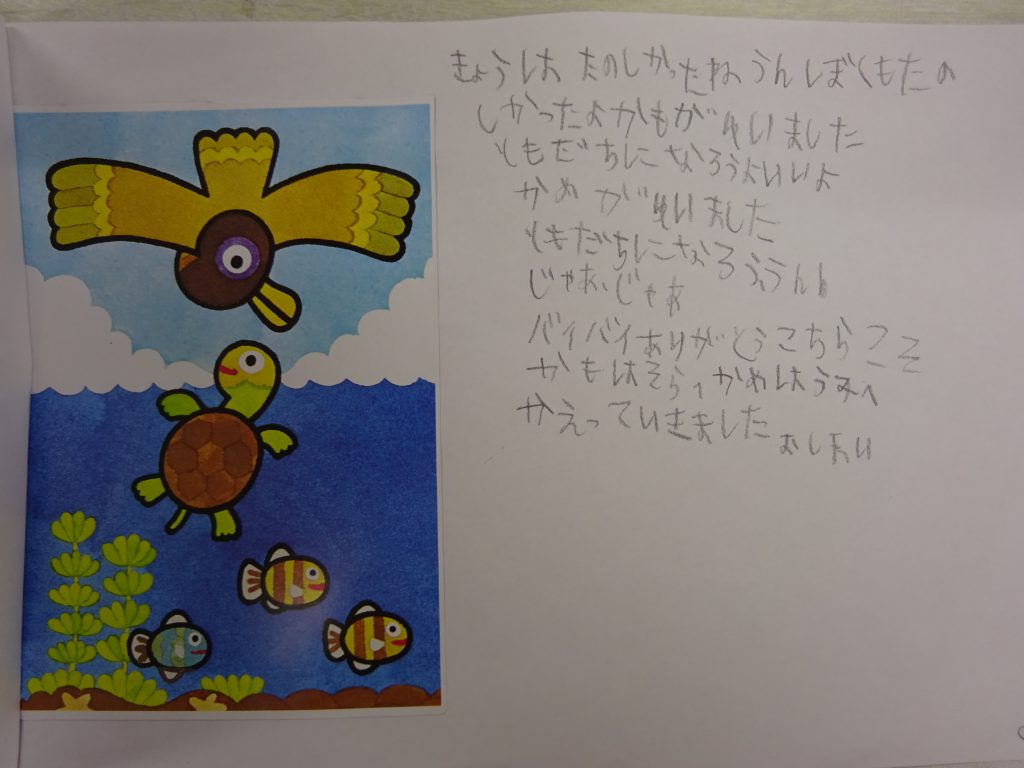 きょうは たのしかったね うん ぼくもたの
しかったよ かもがいいました
ともだちになろうよ いいよ
かめ がいいました
ともだちになろう うん
じゃあ、じゃあ
バイバイ ありがとう こちらこそ
かもはそらへ かめはうみへ
かえっていきました おしまい